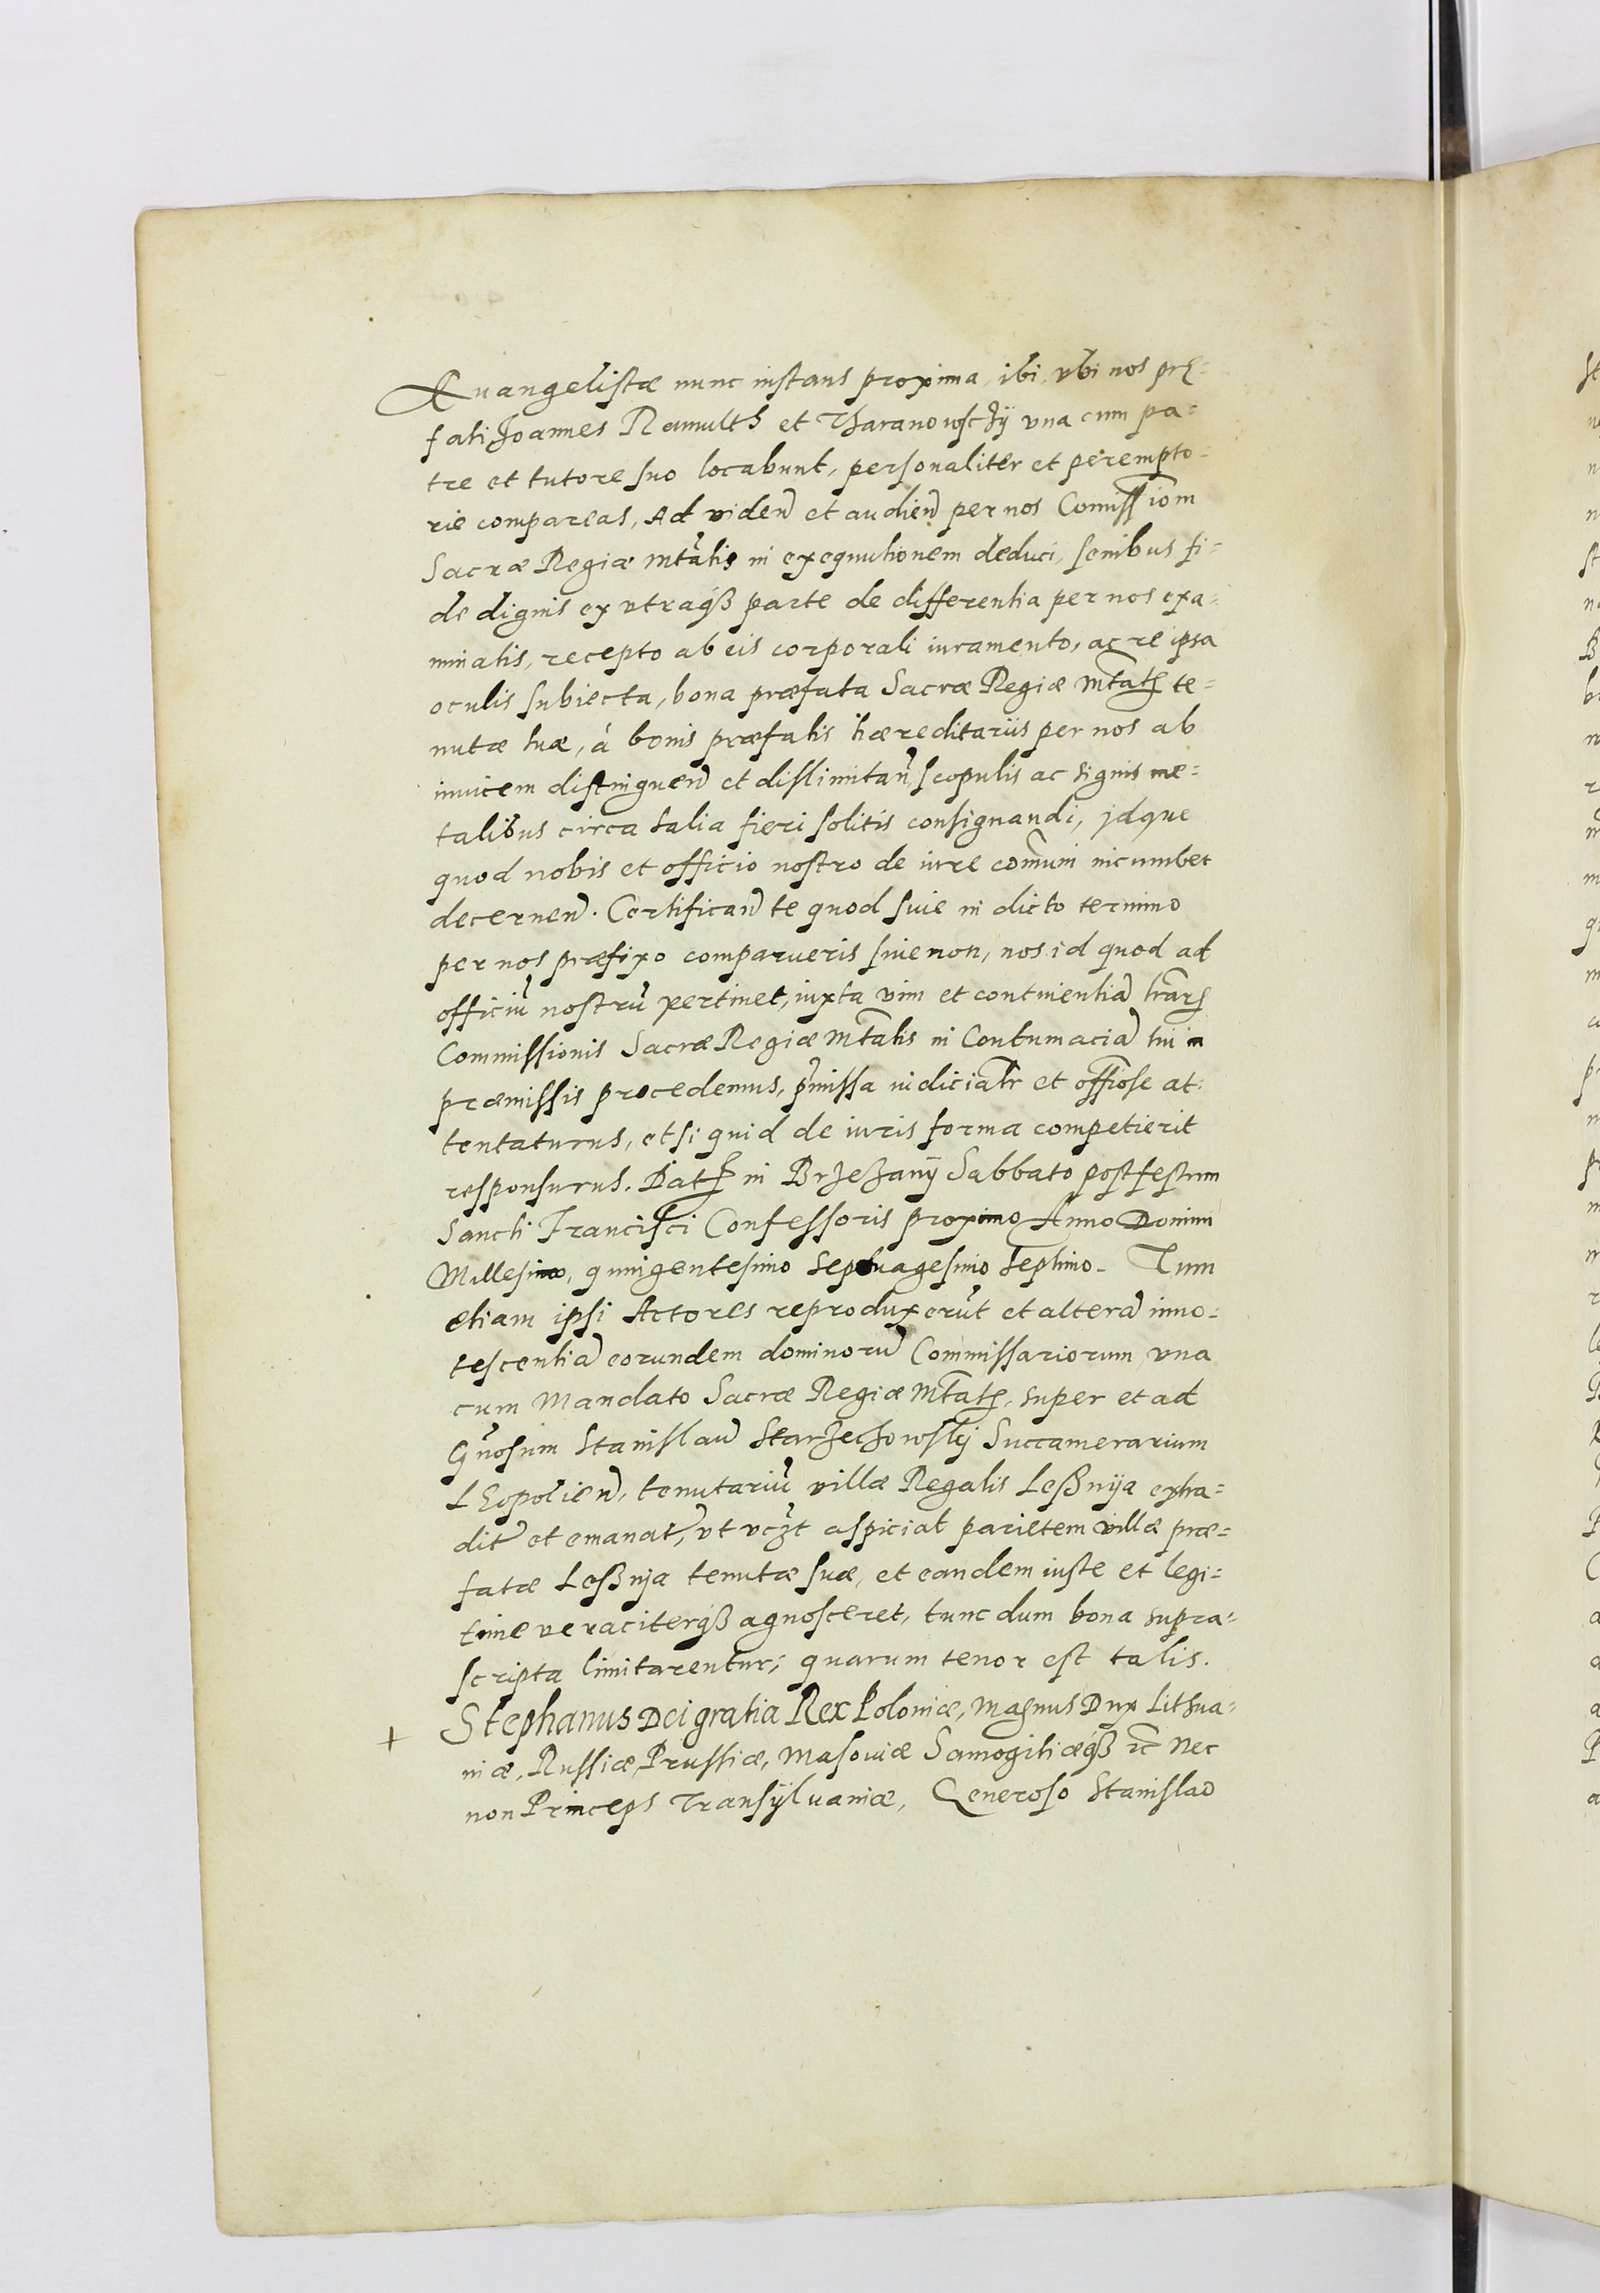 Euangelistæ nunc instans proxima, ibi vbi nos prę-
fati Joannes Ramulth et Tharanowsckÿ vna cum pa-
tre et tutore suo locabunt, personaliter et perempto-
rie compareas, Ad viden̄ et audien̄ per nos Com̄issiom̄
Sacræ Regiæ Mt̄atis in exequutionem deduci, senibus fi-
de dignis ex vtraq₃ parte de differentia per nos exa-
minatis, recepto ab eis corporali iuramento, ac re ipsa
oculis subiecta, bona præfata Sacræ Regiæ Mt̄atꝭ te-
nutæ tuæ, à bonis præfatis hæreditariis per nos ab
inuicem distinguen̄ et dislimitan̄, scopulis ac signis me-
talibus circa talia fieri solitis consignandi, jdque
quod nobis et officio nostro de iure com̄uni incumbet
decernen̄. Certifican̄ te quod siue in dicto termino
per nos præfixo comparueris siue non, nos id quod ad
officiū nostrū pertinet, iuxta vim et continentiā lr̄arꝭ
Commissionis Sacræ Regiæ Mt̄atis in Contumaciā tui in
præmissis procedemus, p̄missa iudicialr̄ et offiōse at-
tentaturus, et si quid de iuris forma competierit
responsurus. Datꝭ in Brzezanÿ Sabbato post festum
Sancti Francisci Confessoris proximo Anno Domini
Millesimo, quingentesimo septuagesimo septimo. Tum
etiam ipsi Actores reproduxerūt et alterā inno-
tescentiā eorundem dominorū Commissariorum vna
cum Mandato Sacræ Regiæ Mt̄atꝭ, super et ad
Gn̄osum Stanislaū Starzechowskj Succamerarium
Lḣopolien̄, tenutariū villæ Regalis Leßnÿæ extra-
dit̄ et emanat̄, vt vcꝫt aspiciat parietem villæ præ-
fatæ Leßnÿæ tenutæ suæ, et eandem iuste et legi-
time veraciterq₃ agnosceret, tunc dum bona supra-
scripta limitarentur; quarum tenor est talis.
+ Stephanus Dei gratia Rex Poloniæ, Magnus Dux Lithua-
niæ, Russiæ, Prussiæ, Masouiæ Samogitiæq₃ ꝛc̄ Nec
non Princeps Transÿluaniæ, Generoso Stanislao